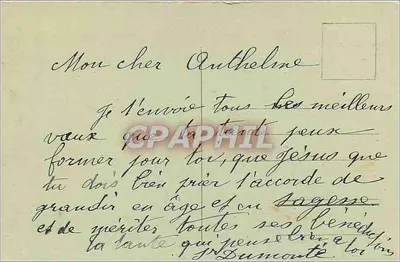 Mon cher Anthelme
Je t'envoie tous les meilleurs
vœux que ta tante peux
former pour toi, que Jésus que
tu dois bien prier t'accorde de
grandir en âge et en sagesse
et de mériter toutes ses bénédictions
ta tante qui pense bien à toi
Dumonté
CPAPHIL